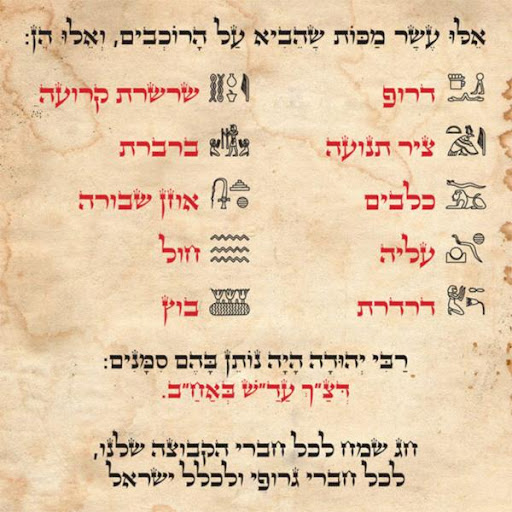 אִלּוּ עֶשָׂר מַכּוֹת שָׁהֵבִיא עַל הָרוֹכְבִים, וְאִלוּ הֵן:
דרופ
ציר תנועה
כלבים
עליה
דרדרת
שרשרת קרועה
ברברת
אוזן שבורה
חול
בוץ
רַבִּי יְהוּדָה הָיָה נוֹתֵן בָּהֶם סִמָּנִים:
דְּצַ"ךְ עַדַ"שׁ בְּאַחַ"ב.
חג שמח לכל חברי הקבוצה שלנו,
לכל חברי גרופי ולכלל ישראל